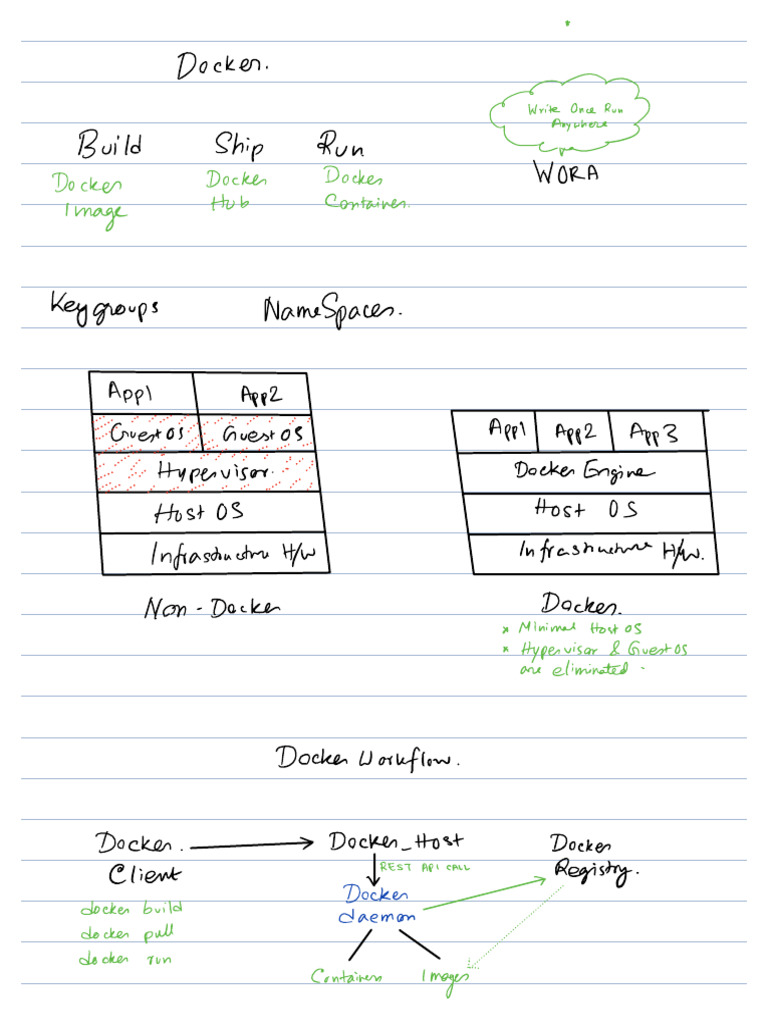 Docker.
Write Once Run
Anywhere
WORA
Build Ship Run
Docker Docker Docker
Image Hub Container.
Keygroups NameSpaces.
App1 App2
Guest OS Guest OS
Hypervisor.
Host OS
Infrastructure H/W
Non-Docker
App1 App2 App3
Docker Engine
Host OS
Infrastructure H/W.
Docker.
* Minimal Host OS
* Hypervisor & Guest OS
are eliminated.
Docker Workflow.
Docker. Docker_Host Docker
Client REST API CALL Registry.
docker build Docker
docker pull daemon
docker run
Containers Images